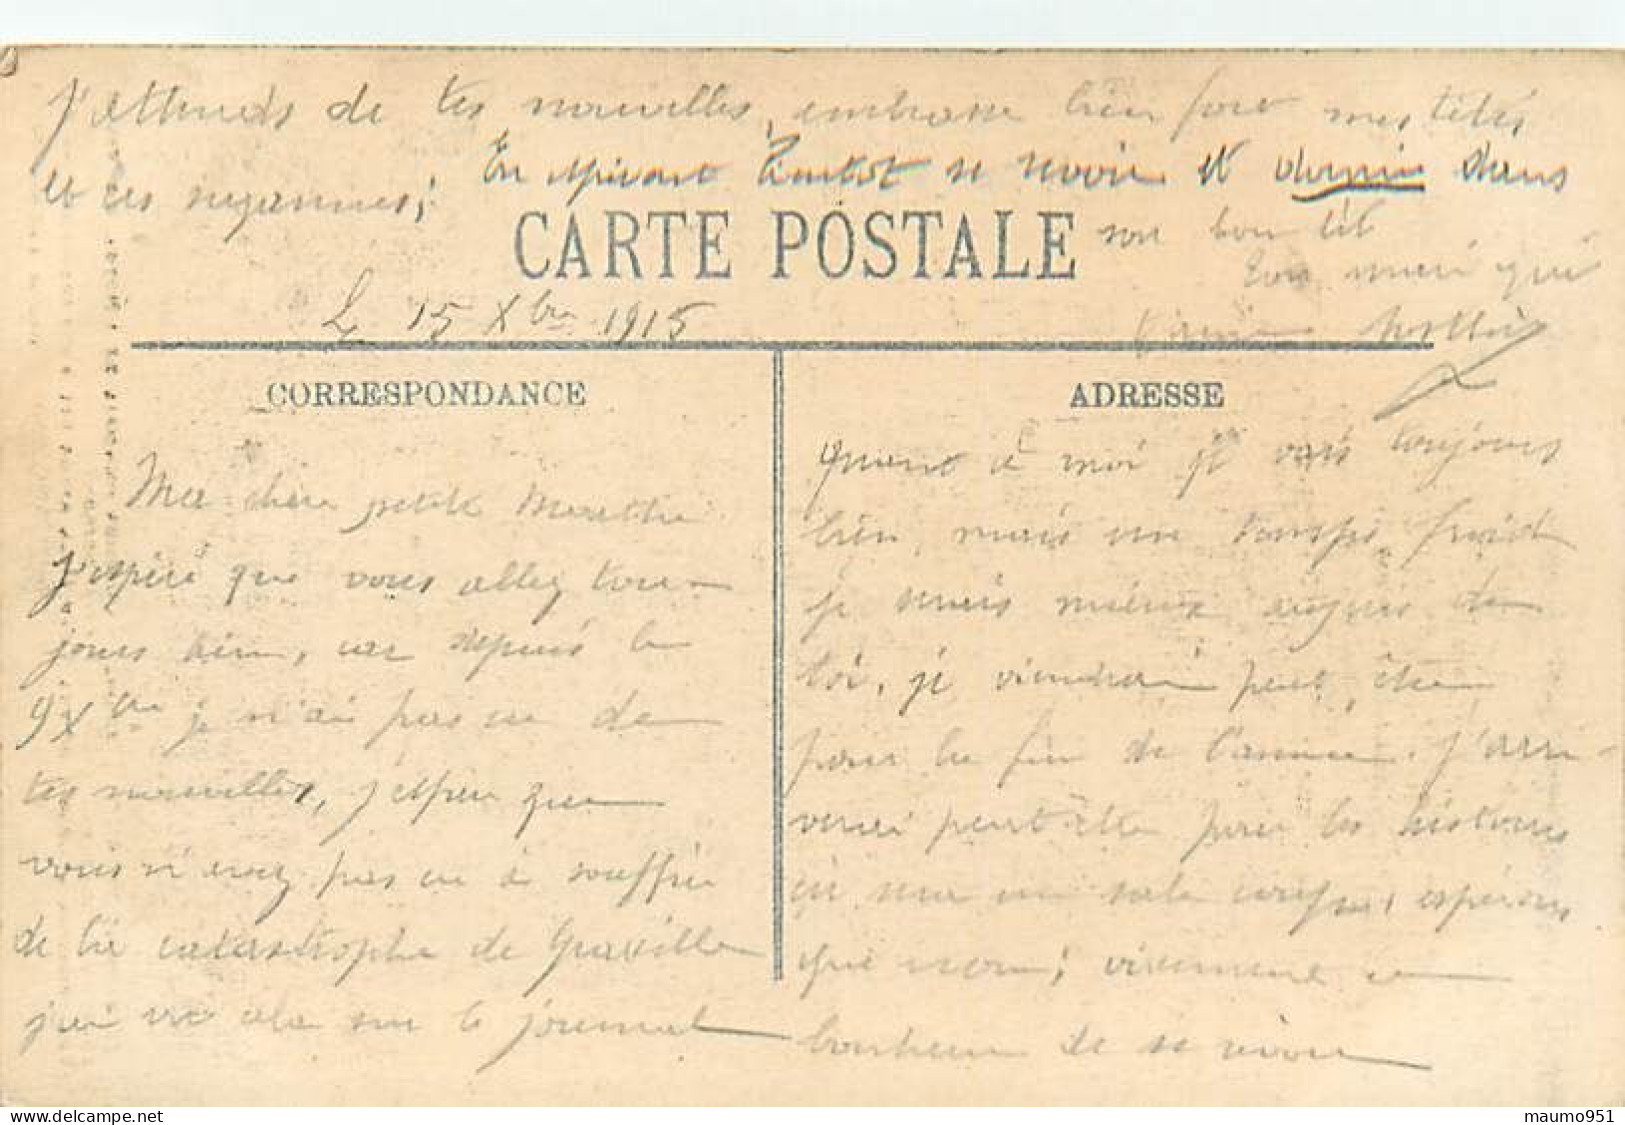 j'attends de tes nouvelles, embrasse bien fort mes
et ces ; En espérant bientôt se revoir et dormir dans
son bon lit
CARTE POSTALE
Ton mari qui
L 15 Xbre 1915
CORRESPONDANCE
Ma chère petite Marthe
j'espère que vous allez tou-
jours bien, car depuis le
9 Xbre je n'ai pas eu de
tes nouvelles, j'espère que
vous n'avez pas eu à souffrir
de la catastrophe de Graville
j'ai vu cela sur le journal
ADRESSE
quant à moi je vais toujours
bien, mais un temps froid
je serais mieux auprès de
toi, je viendrai peut être
pour la fin de l'année. J'arri-
verai peut être pour les
que non; vivement ce
bonheur de se revoir
maumo951